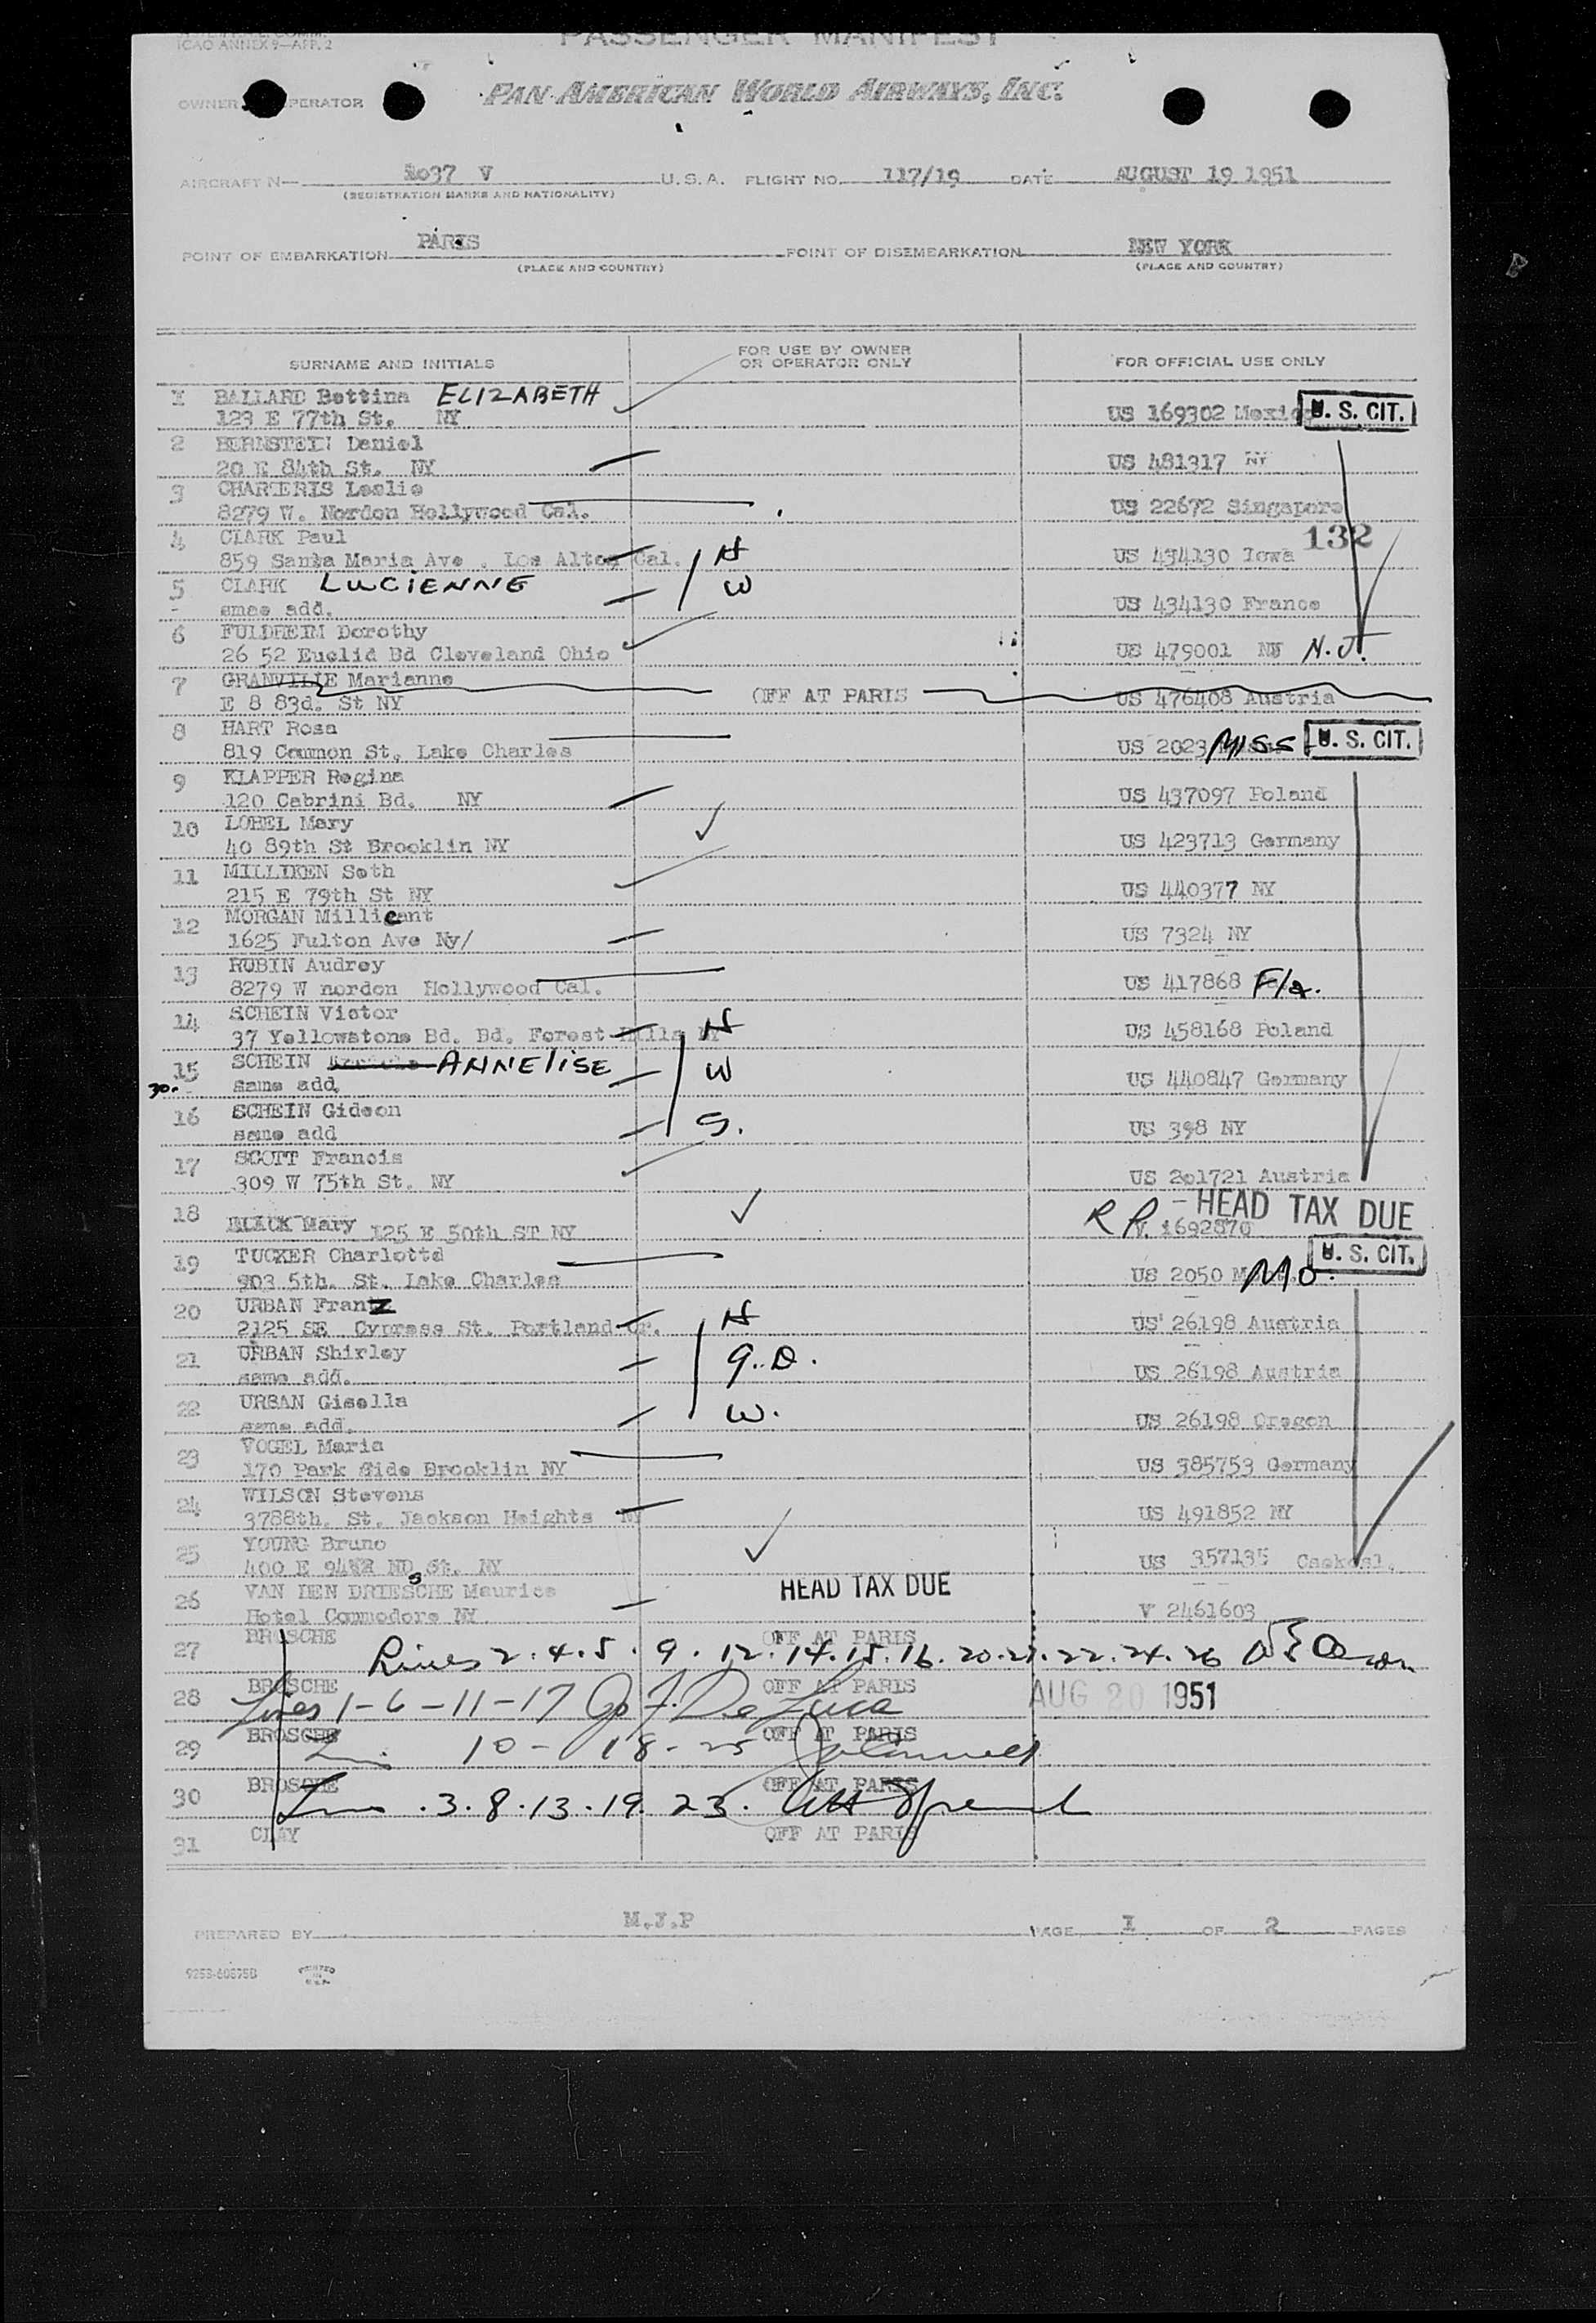 ICAO ANNEX 9—APP. 2
PASSENGER MANIFEST
OWNER OPERATOR PAN AMERICAN WORLD AIRWAYS, INC.
AIRCRAFT N— 1037 V U.S.A. FLIGHT NO. 117/19 DATE AUGUST 19 1951
(REGISTRATION MARKS AND NATIONALITY)
POINT OF EMBARKATION PARIS POINT OF DISEMBARKATION NEW YORK
(PLACE AND COUNTRY) (PLACE AND COUNTRY)
SURNAME AND INITIALS FOR USE BY OWNER OR OPERATOR ONLY FOR OFFICIAL USE ONLY
1 BALLARD Bettina ELIZABETH
123 E 77th St. NY US 169302 Mexico U. S. CIT.
2 BERNSTEIN Daniel
20 E 84th St. NY US 481317 NY
3 CHARTERIS Leslie
8279 W. Nordon Hollywood Cal. US 22672 Singapore
132
4 CLARK Paul
859 Santa Maria Ave . Los Altos Cal. H US 434130 Iowa
5 CLARK LUCIENNE W
smae add. US 434130 France
6 FULDHEIM Dorothy
26 52 Euclid Bd Cleveland Ohio US 479001 NJ N.J.
7 GRANVILLE Marianne
E 8 83d. St NY OFF AT PARIS US 476408 Austria
8 HART Rosa
819 Common St. Lake Charles US 2023 MISS U. S. CIT.
9 KLAPPER Regina
120 Cabrini Bd. NY US 437097 Poland
10 LOBEL Mary
40 89th St Brooklin NY US 423713 Germany
11 MILLIKEN Seth
215 E 79th St NY US 440377 NY
12 MORGAN Millicent
1625 Fulton Ave Ny/ US 7324 NY
13 RUBIN Audrey
8279 W nordon Hollywood Cal. US 417868 Fla.
14 SCHEIN Victor
37 Yellowstone Bd. Bd. Forest Hills NY H US 458168 Poland
15 SCHEIN ANNELISE W
30.- same add. US 440847 Germany
16 SCHEIN Gideon
same add S. US 398 NY
17 SCOTT Francis
309 W 75th St. NY US 201721 Austria
R P. - HEAD TAX DUE
18 BLACK Mary 125 E 50th ST NY V. 1692870
19 TUCKER Charlotte U. S. CIT.
903 5th. St. Lake Charles US 2050 MO.
20 URBAN Frantz
2125 SE Cypress St. Portland Or. H US 26198 Austria
21 URBAN Shirley
same add. 9. D. US 26198 Austria
22 URBAN Gisella
same add. W. US 26198 Oregon
23 VOGEL Maria
170 Park Side Brooklin NY US 385753 Germany
24 WILSON Stevens
3788th. St. Jackson Heights NY US 491852 NY
25 YOUNG Bruno
400 E ND St. NY US 357135
26 VAN DEN DRIESSCHE Maurice HEAD TAX DUE
Hotel Commodore NY V 2461603
27 BROSCHE OFF AT PARIS
Lines 2.4.5. 9. 12. 14.15.16. 20.21.22.24.26
28 BROSCHE OFF AT PARIS AUG 20 1951
Lines 1-6-11-17 Jo F. De Luca
29 BROSCHE OFF AT PARIS
10- 18-25
30 BROSCHE OFF AT PARIS
.3.8.13.19.23.
31 CLAY OFF AT PARIS
PREPARED BY M.J.P PAGE I OF 2 PAGES
9253-60875B PRINTED IN U.S.A.